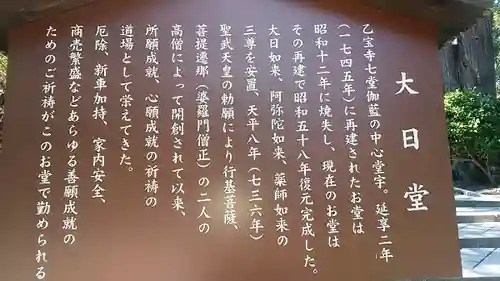 大日堂
乙宝寺七堂伽藍の中心堂宇。延享二年
(一七四五年)に再建されたお堂は
昭和十二年に焼失し、現在のお堂は
その再建で昭和五十八年復元完成した。
大日如来、阿弥陀如来、薬師如来の
三尊を安置、天平八年(七三六年)
聖武天皇の勅願により行基菩薩、
菩提遷那(婆羅門僧正)の二人の
高僧によって開創されて以来、
所願成就、心願成就の祈祷の
道場として栄えてきた。
厄除、新車加持、家内安全、
商売繁盛などあらゆる善願成就の
ためのご祈祷がこのお堂で勤められる